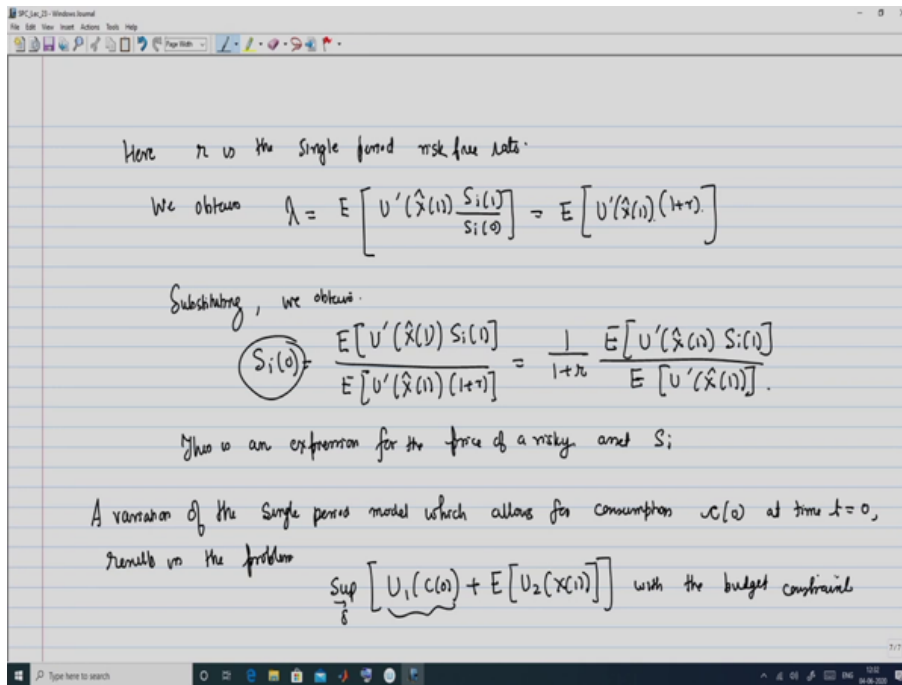 SPC_Lec_23 - Windows Journal
File Edit View Insert Actions Tools Help
Page Width
Here r is the single period risk free rate.
We obtain λ = E[U'(X̂(1)) Si(1)/Si(0)] = E[U'(X̂(1)) (1+r)]
Substituting, we obtain.
Si(0) = E[U'(X̂(1)) Si(1)] / E[U'(X̂(1)) (1+r)] = 1/(1+r) E[U'(X̂(1)) Si(1)] / E[U'(X̂(1))].
This is an expression for the price of a risky asset Si
A variation of the single period model which allows for consumption c(0) at time t=0,
results in the problem
Sup δ [U₁(C(0)) + E[U₂(X(1))]] with the budget constraint
7/7
Type here to search
ENG
12:32
04-06-2020